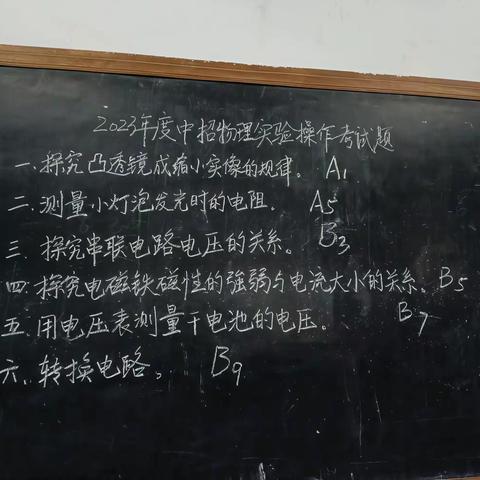 2023年度中招物理实验操作考试题
一.探究凸透镜成缩小实像的规律。 A₁
二.测量小灯泡发光时的电阻. A₅
三.探究串联电路电压的关系。 B₃
四.探究电磁铁磁性的强弱与电流大小的关系。B₅
五.用电压表测量干电池的电压。 B₇
六.转换电路。 B₉